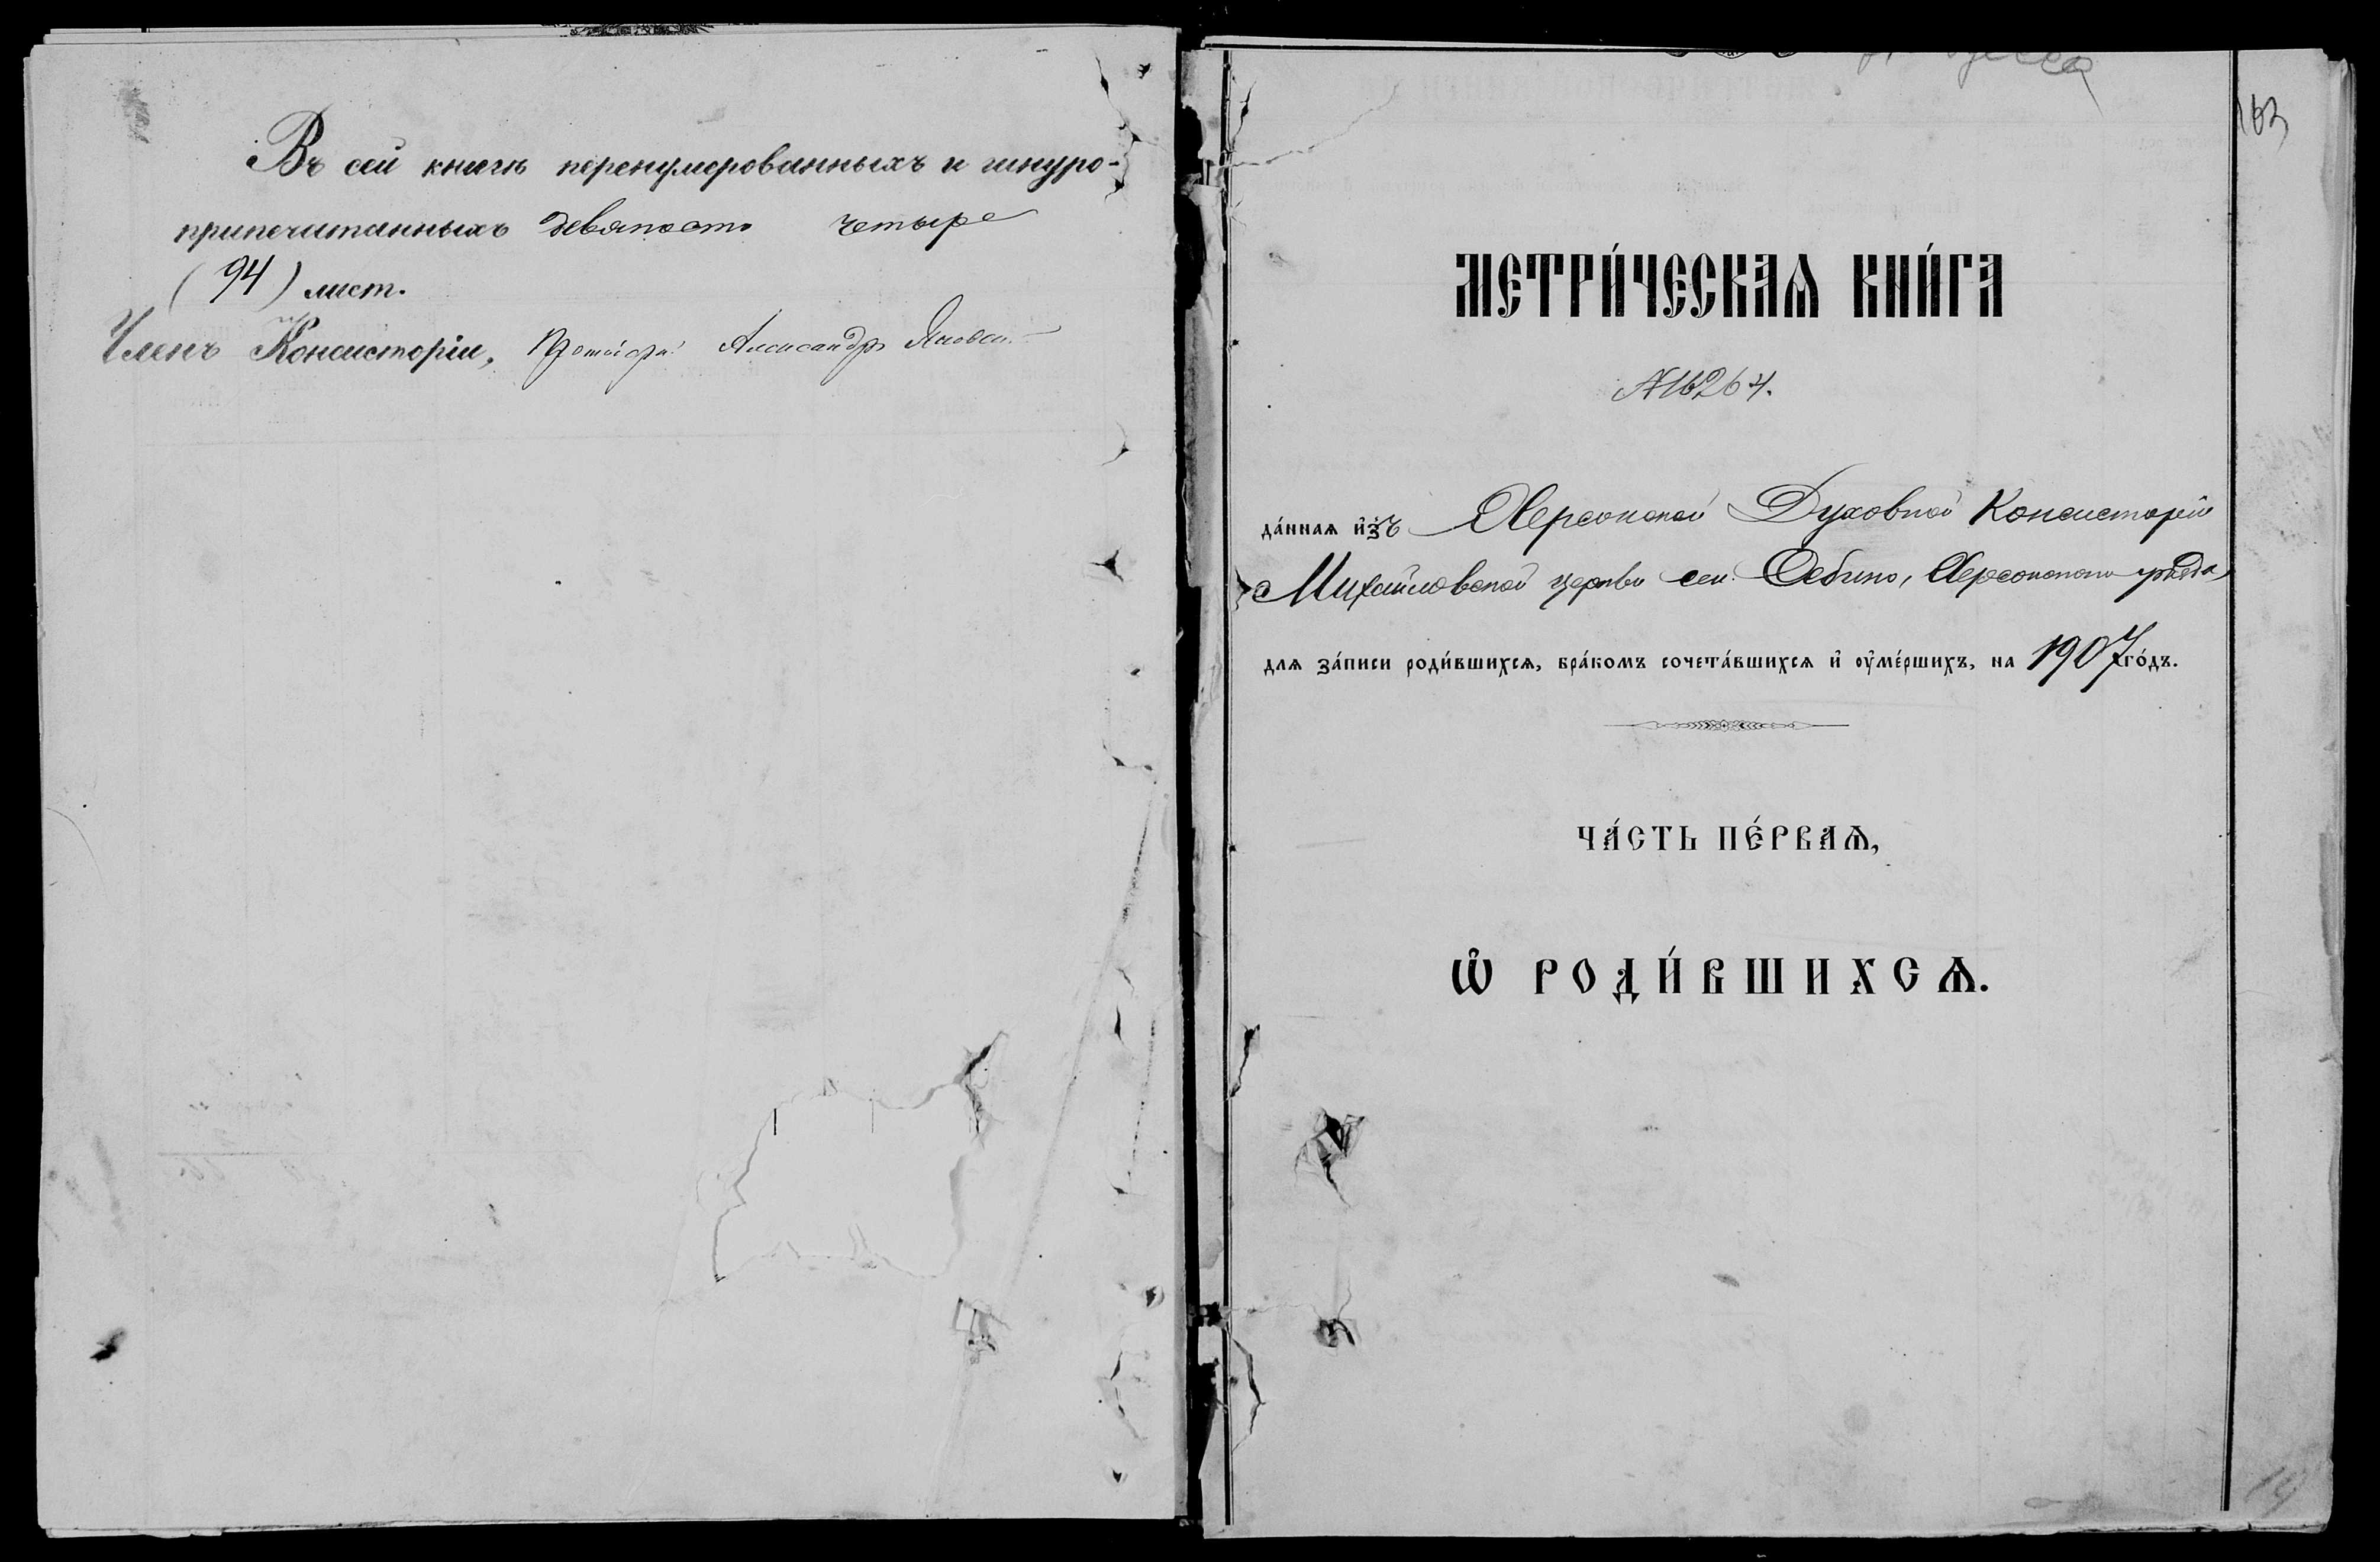 Въ сей книгѣ перенумерованныхъ и шнуро-
припечатанныхъ девяносто четыре
(94) лист.
Членъ Консисторіи, Александръ
163
МЕТРИ́ЧЕСКАѦ КНИ́ГА
№ 16264.
да́ннаѧ и҆зъ Херсонской Духовной Консисторіи
Михайловской церкви сел. Себино, Херсонскаго уѣзда,
длѧ за́писи роди́вшихсѧ, бра́комъ сочета́вшихсѧ и҆ оу҆ме́ршихъ, на 1907 го́дъ.
ЧА́СТЬ ПЕ́РВАѦ,
Ѡ҆ РОДИ́ВШИХСѦ.